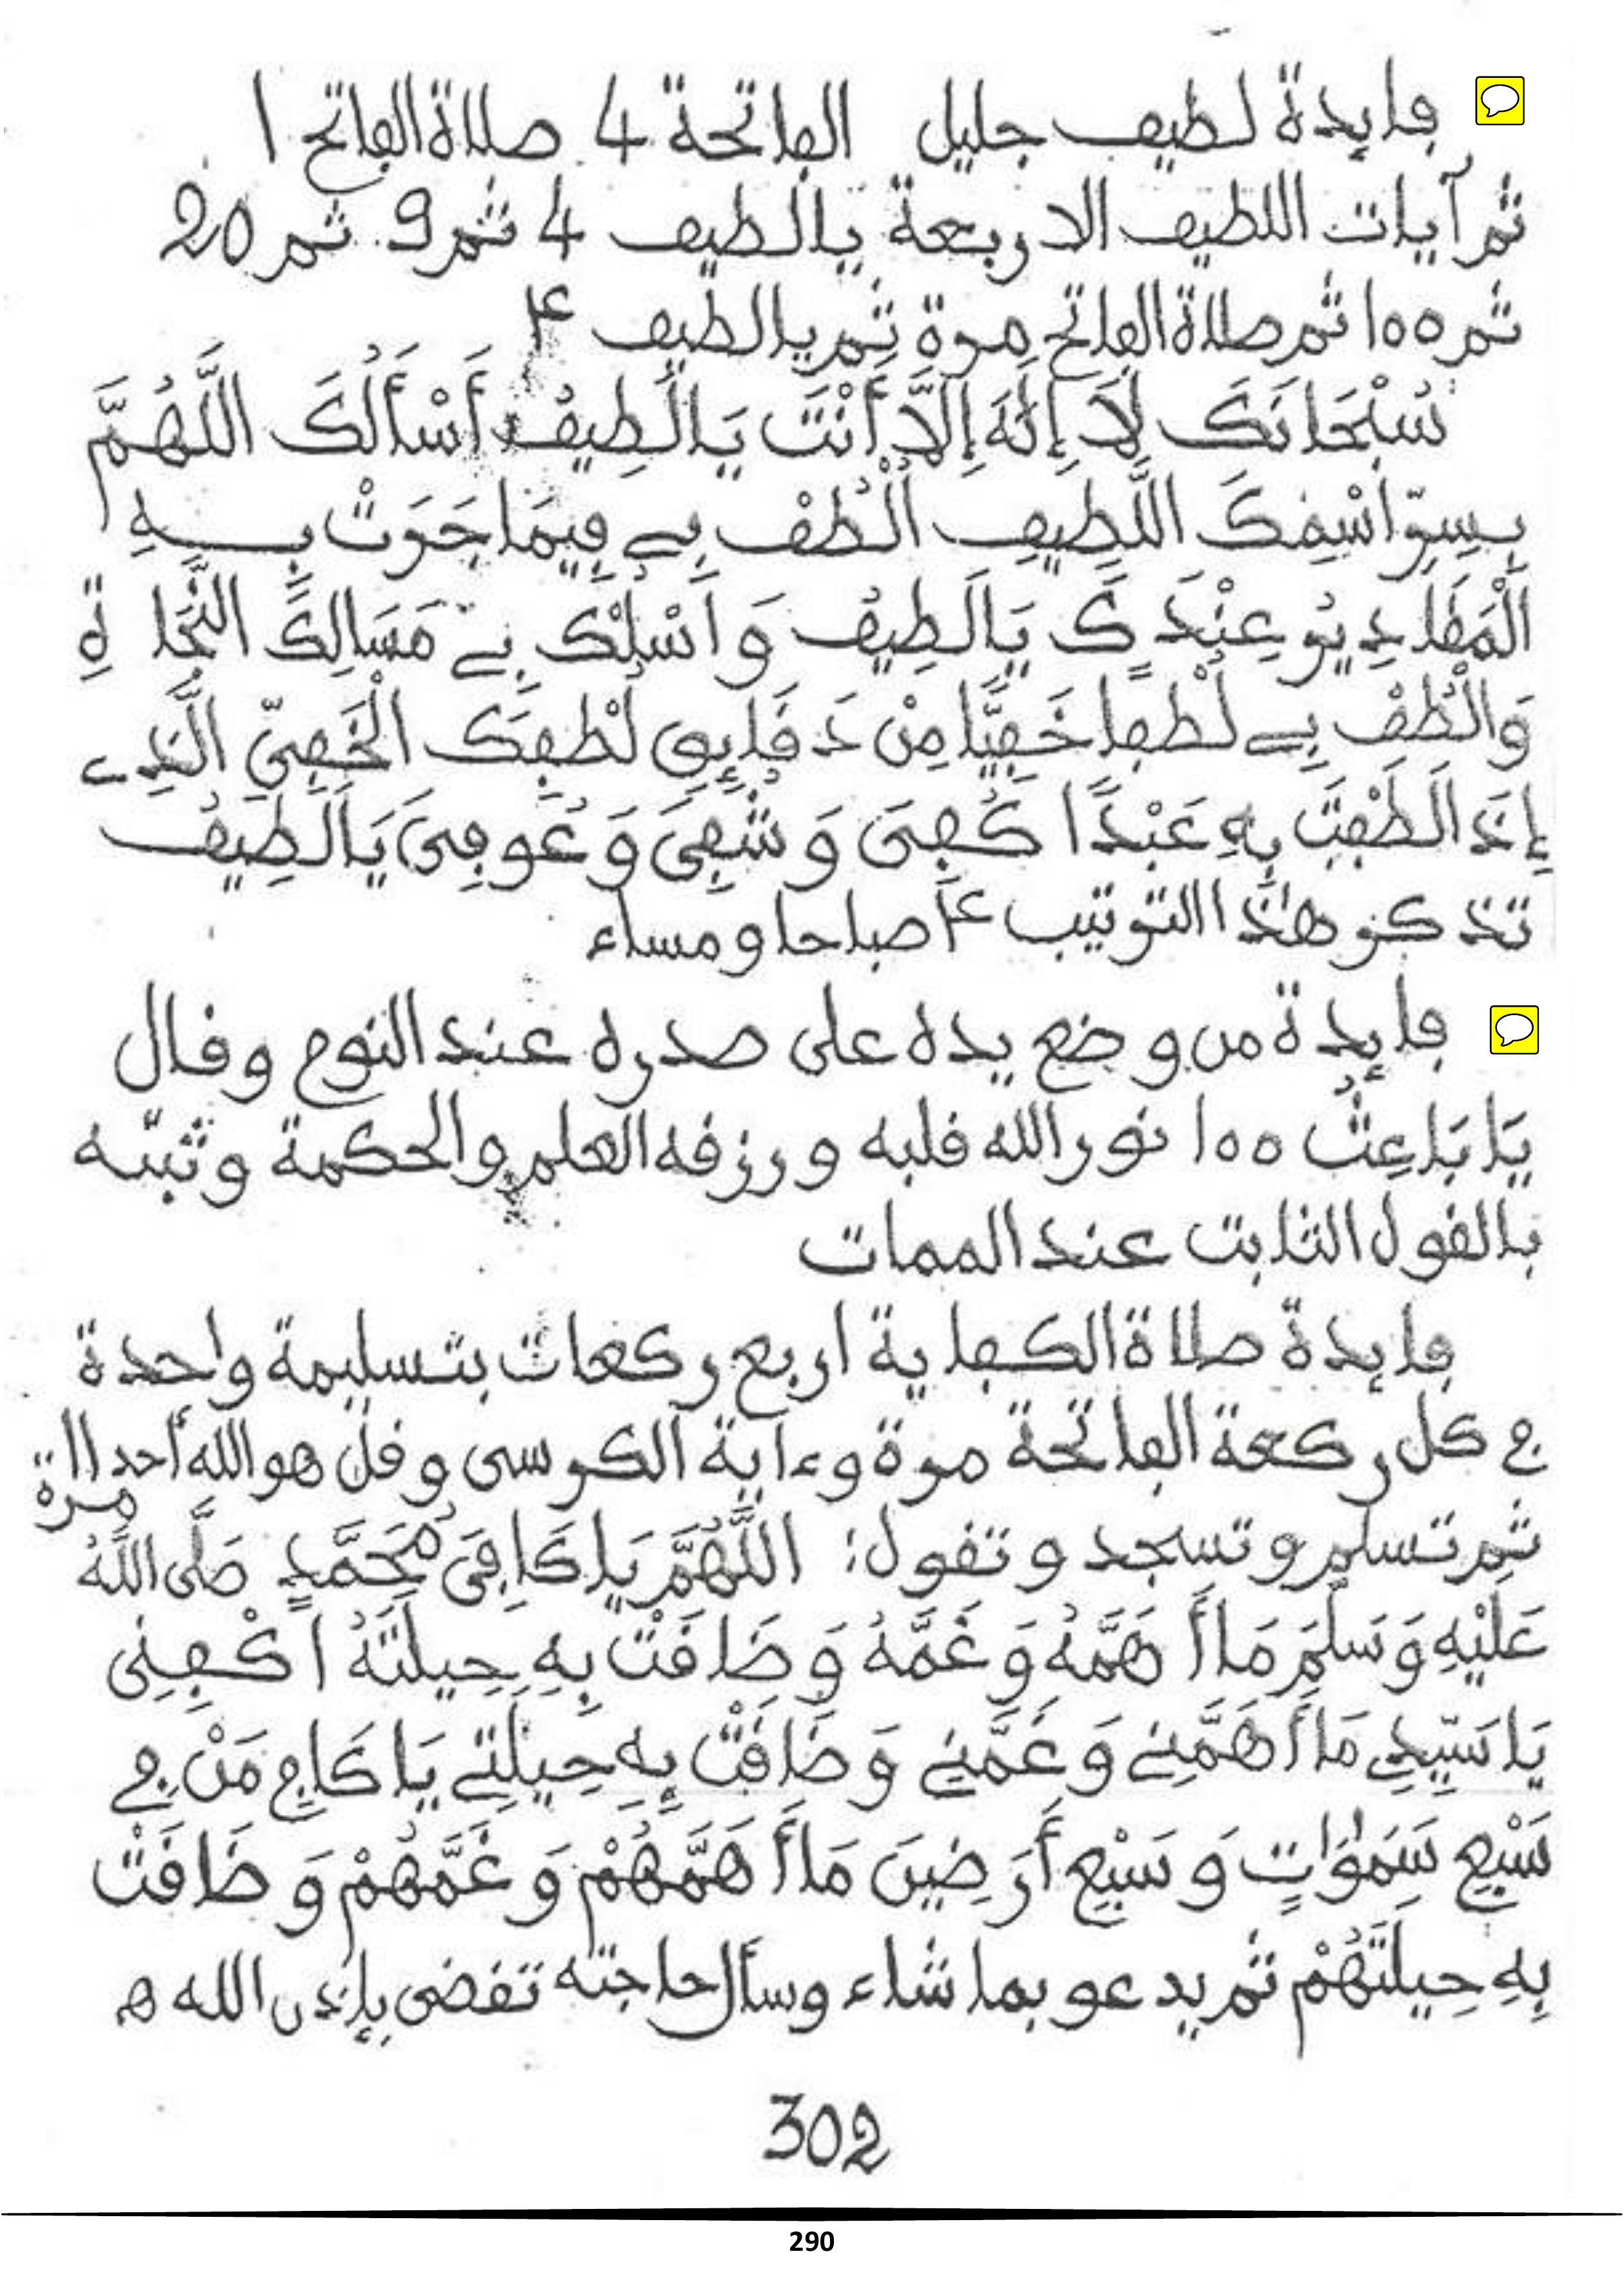 فايدة لطيف جليل الفاتحة 4 صلاة الفاتح 1
ثم آيات اللطيف الاربعة يالطيف 4 ثم 9 ثم 20
ثم 100 ثم صلاة الفاتح مرة ثم يالطيف
سُبْحَانَكَ لَا إِلَهَ إِلَّا أَنْتَ يَالَطِيفُ أَسْأَلُكَ اللَّهُمَّ
بِسِرِّ اسْمِكَ اللَّطِيفِ الْطُفْ بِي فِيمَا جَرَتْ بِهِ
الْمَقَادِيرُ عِنْدَكَ يَالَطِيفُ وَاسْلُكْ بِي مَسَالِكَ النَّجَاةِ
وَالْطُفْ بِي لُطْفًا خَفِيًّا مِنْ دَقَايِقِ لُطْفِكَ الْخَفِيِّ الَّذِي
إِذَا لَطَفْتَ بِهِ عَبْدًا كُفِيَ وَشُفِيَ وَعُوفِيَ يَالَطِيفُ
تذكر هذا الترتيب صباحا ومساء
فايدة من وضع يده على صدره عند النوم وقال
يَا بَاعِثُ 100 نور الله قلبه ورزقه العلم والحكمة وثبّته
بالقول الثابت عند الممات
فايدة صلاة الكفاية اربع ركعات بتسليمة واحدة
في كل ركعة الفاتحة مرة وءاية الكرسي وقل هو الله أحد 11 مرة
ثم تسلم وتسجد وتقول: اللَّهُمَّ يَا كَافِيَ مُحَمَّدٍ صَلَّى اللَّهُ
عَلَيْهِ وَسَلَّمَ مَا أَهَمَّهُ وَغَمَّهُ وَضَاقَتْ بِهِ حِيلَتُهُ اكْفِنِي
يَا سَيِّدِي مَا أَهَمَّنِي وَغَمَّنِي وَضَاقَتْ بِهِ حِيلَتِي يَا كَافِي مَنْ فِي
سَبْعِ سَمَوَاتٍ وَسَبْعِ أَرَضِينَ مَا أَهَمَّهُمْ وَغَمَّهُمْ وَضَاقَتْ
بِهِ حِيلَتُهُمْ ثم يدعو بما شاء وسأل حاجته تقضى بإذن الله ه
302
290